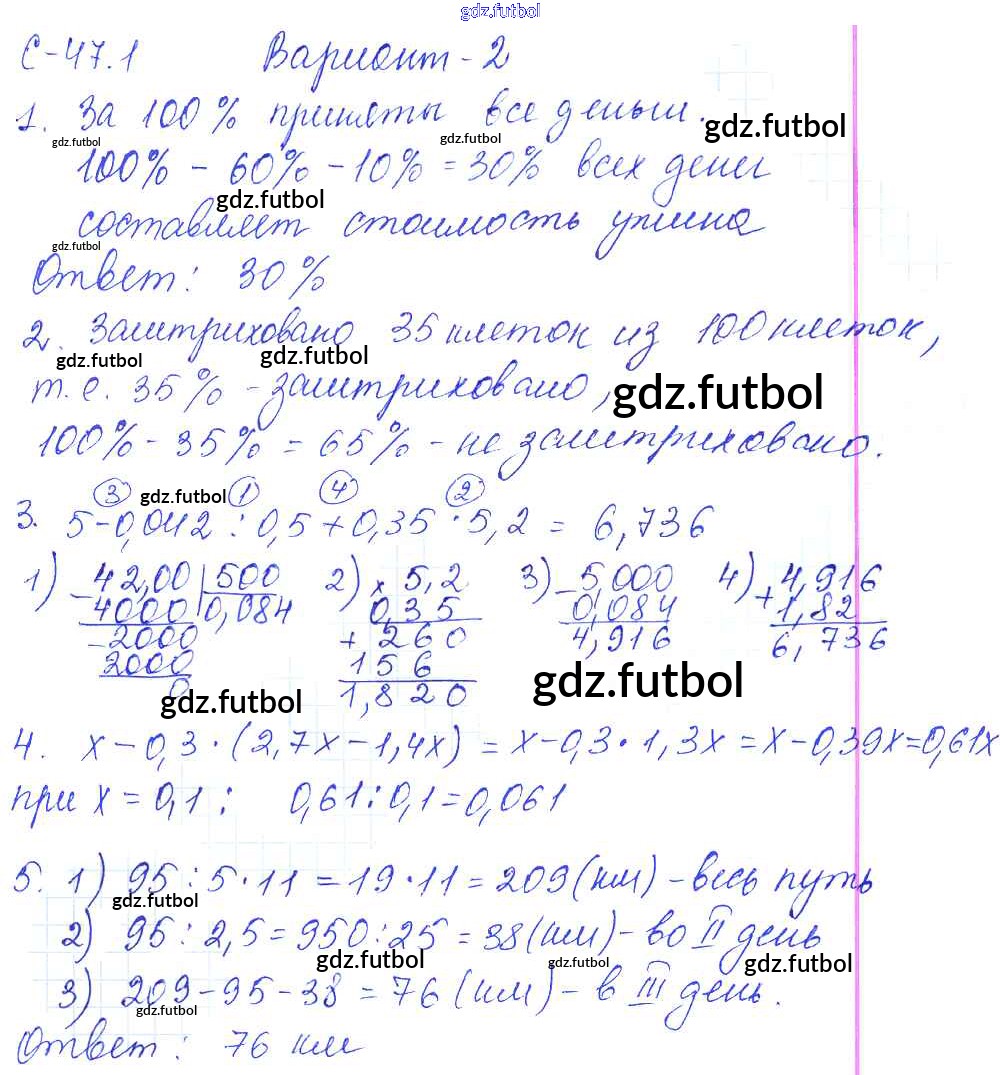 gdz.futbol
С-47.1 Вариант-2
1. За 100% приняты все деньги.
gdz.futbol gdz.futbol gdz.futbol
100% - 60% - 10% = 30% всех денег
gdz.futbol
составляет стоимость ужина
gdz.futbol
Ответ: 30%
2. Заштриховано 35 клеток из 100 клеток,
gdz.futbol gdz.futbol
т.е. 35% - заштриховано,
gdz.futbol
100% - 35% = 65% - не заштриховано.
3 gdz.futbol 1 4 2
3. 5-0,042 : 0,5 + 0,35 · 5,2 = 6,736
1) - 42,00 | 500 2) × 5,2 3) - 5,000 4) + 4,916
4000 0,084 0,35 0,084 1,82
- 2000 + 260 4,916 6,736
2000 156
0 1,820
gdz.futbol gdz.futbol
4. x - 0,3 · (2,7x - 1,4x) = x - 0,3 · 1,3x = x - 0,39x = 0,61x
при x = 0,1 : 0,61 : 0,1 = 0,061
5. 1) 95 : 5 · 11 = 19 · 11 = 209 (км) - весь путь
gdz.futbol
2) 95 : 2,5 = 950 : 25 = 38 (км) - во II день
gdz.futbol gdz.futbol gdz.futbol
3) 209 - 95 - 38 = 76 (км) - в III день.
gdz.futbol
Ответ: 76 км